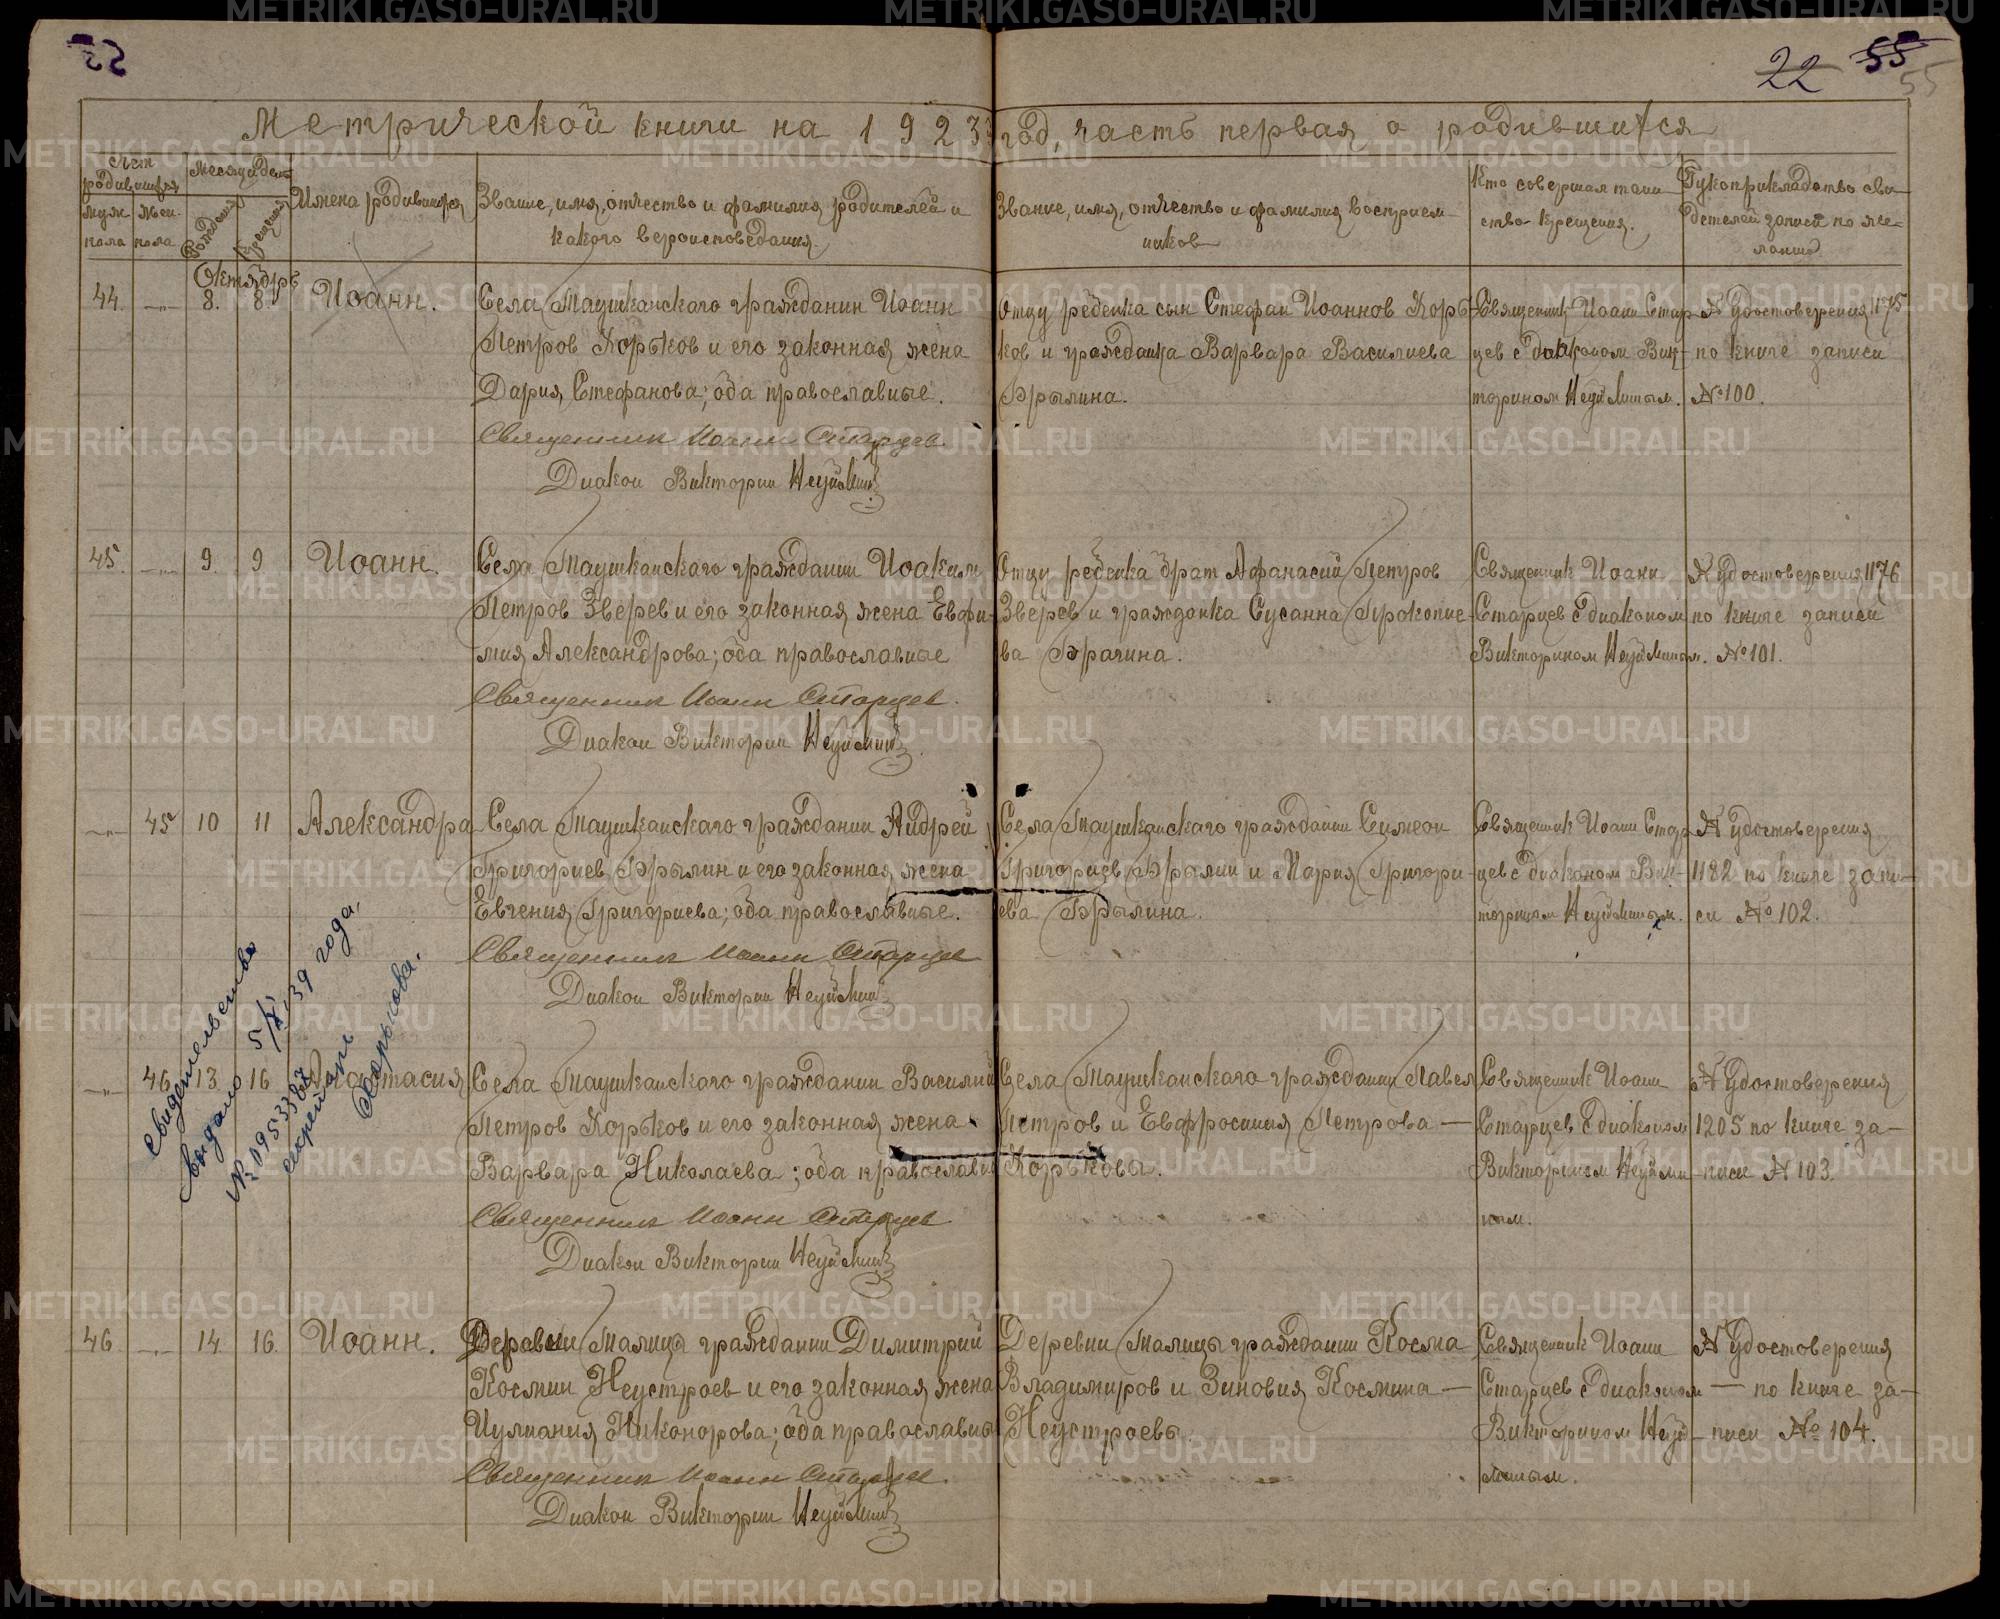 22 55
55
Метрической книги на 1923 год, часть первая о родившихся
Счет родившихся
Месяц и день
мужс. пола
женс. пола
Рождения
Крещения
Имена родившихся
Звание, имя, отчество и фамилия родителей и
какого вероисповедания.
Звание, имя, отчество и фамилия восприем-
ников
Кто совершал таин-
ство крещения.
Рукоприкладство сви-
детелей записи по же-
ланию
Октябрь
44. 8. 8. Иоанн.
Села Таушканскаго гражданин Иоанн
Петров Хорьков и его законная жена
Дария Стефанова; оба православные.
Священник Иоанн Старцев.
Диакон Викторин Неуймин
Отцу ребенка сын Стефан Иоаннов Хорь-
ков и гражданка Варвара Василиева
Брылина.
Священник Иоанн Стар-
цев с диаконом Вик-
торином Неуйминым.
№ Удостоверения 1175
по книге записи
№ 100.
45. 9. 9 Иоанн.
Села Таушканскаго гражданин Иоаким
Петров Зверев и его законная жена Евфи-
мия Александрова; оба православные
Священник Иоанн Старцев.
Диакон Викторин Неуймин
Отцу ребенка брат Афанасий Петров
Зверев и гражданка Сусанна Прокопие-
ва Брагина.
Священник Иоанн
Старцев с диаконом
Викторином Неуйминым.
№ Удостоверения 1176
по книге записи
№ 101.
45 10 11 Александра
Села Таушканскаго гражданин Андрей
Григориев Брылин и его законная жена
Евгения Григориева; оба православные.
Священник Иоанн Старцев
Диакон Викторин Неуймин
Села Таушканскаго гражданин Симеон
Григориев Брылин и Мария Григори-
ева Брылина.
Священник Иоанн Стар-
цев с диаконом Вик-
торином Неуйминым.
№ Удостоверения
1182 по книге запи-
си № 102.
Свидетельство
выдано 5/X 39 года,
№ 0953387
секретарь
46 13 16 Анастасия
Села Таушканскаго гражданин Василий
Петров Хорьков и его законная жена
Варвара Николаева; оба православны
Священник Иоанн Старцев
Диакон Викторин Неуймин
Села Таушканскаго гражданин Павел
Петров и Евфросиния Петрова —
Хорьковы.
Священник Иоанн
Старцев с диаконом
Викторином Неуйми-
ным.
№ Удостоверения
1205 по книге за-
писи № 103.
46 14 16 Иоанн.
Деревни Талицы гражданин Димитрий
Космин Неустроев и его законная жена
Иулиания Никонорова; оба православны
Священник Иоанн Старцев.
Диакон Викторин Неуймин
Деревни Талицы гражданин Косма
Владимиров и Зиновия Космина —
Неустроевы.
Священник Иоанн
Старцев с диаконом
Викторином Неуй-
миным.
№ Удостоверения
— по книге за-
писи № 104.
METRIKI.GASO-URAL.RU